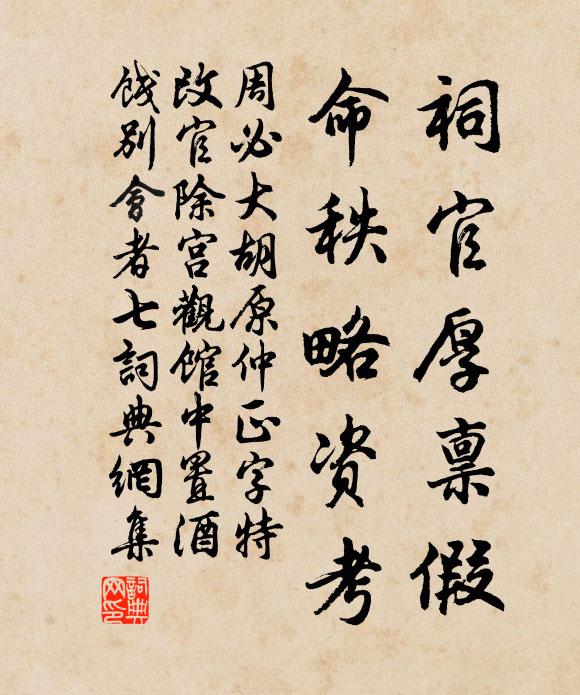 祠官厚禀假
命秩略资考
周必大胡原仲正字特
改官除宫觀館中置酒
餞别會者七詞典網集
詞典
网印